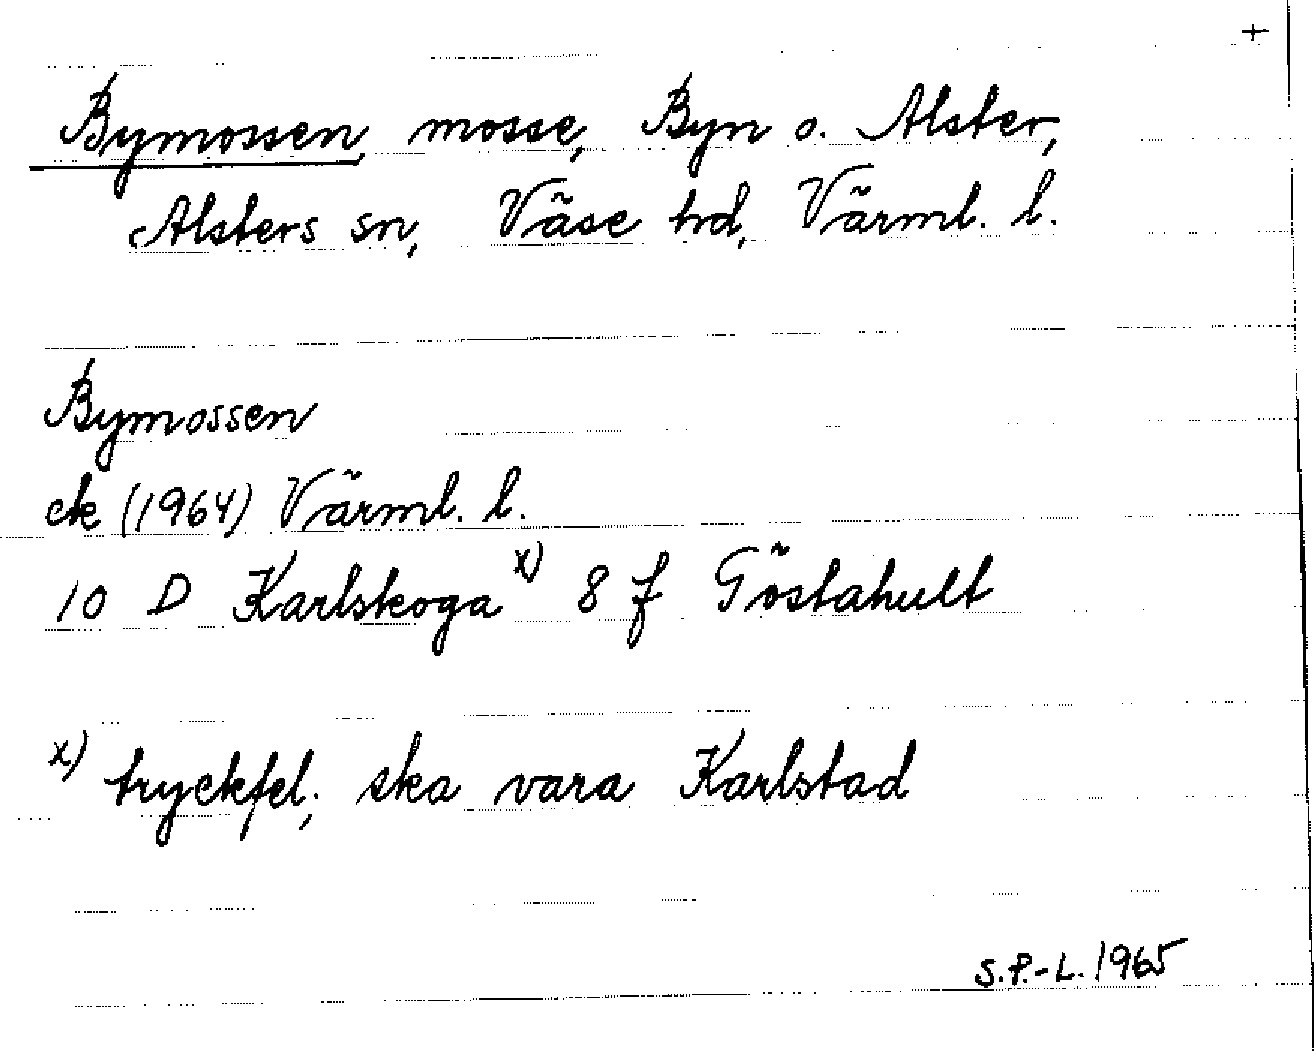 +
Bymossen, mosse, Byn o. Alster,
Alsters sn, Väse hd, Värml. l.
Bymossen
ek (1964) Värml. l.
10 D Karlskoga x) 8 f Göstahult
x) tryckfel; ska vara Karlstad
S.P.-L. 1965